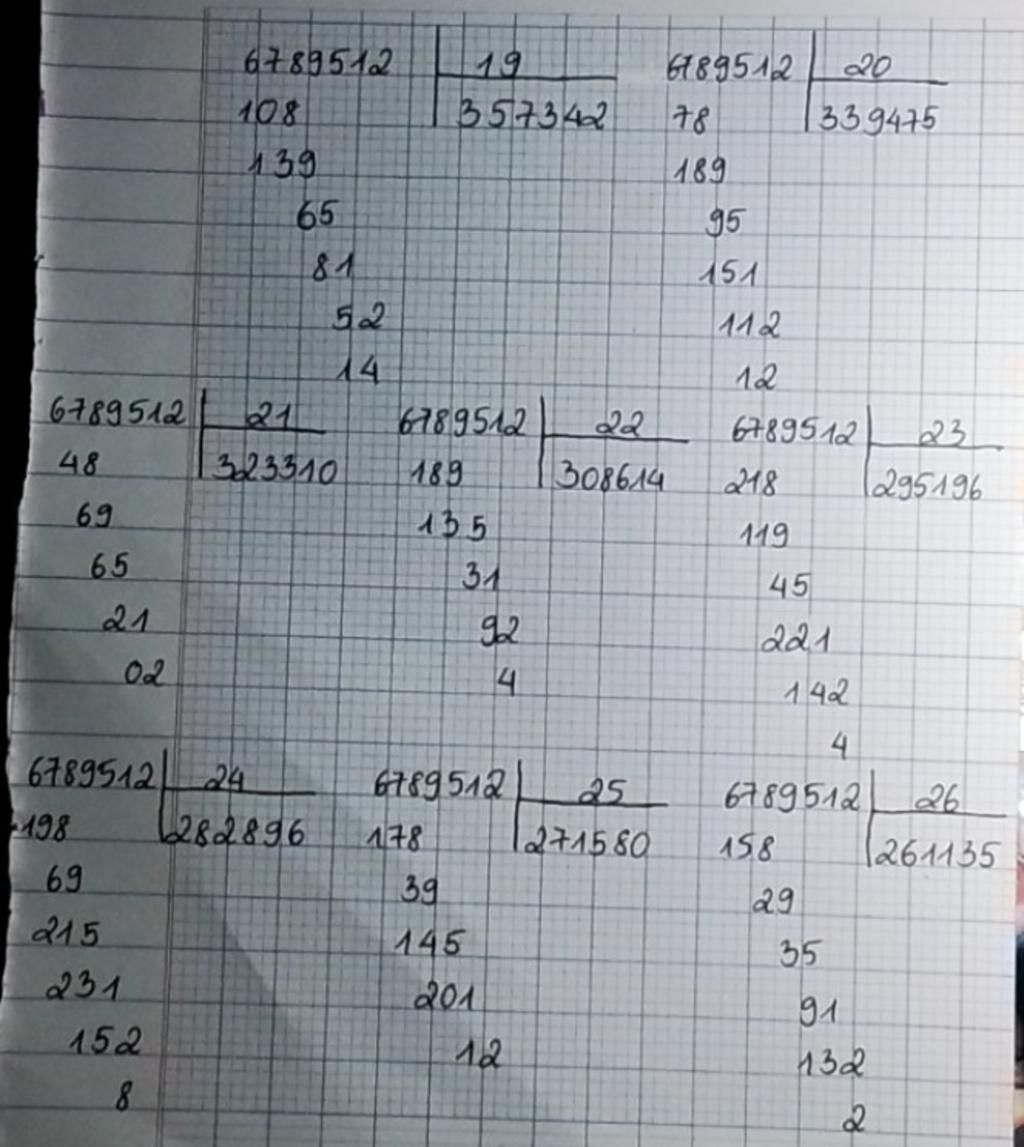 6789512 19 6789512 20
108 357342 78 339475
139 189
65 95
81 151
52 112
14 12
6789512 21 6789512 22 6789512 23
48 323310 189 308614 218 295196
69 135 119
65 31 45
21 92 221
02 4 142
4
6789512 24 6789512 25 6789512 26
198 282896 178 271580 158 261135
69 39 29
215 145 35
231 201 91
152 12 132
8 2